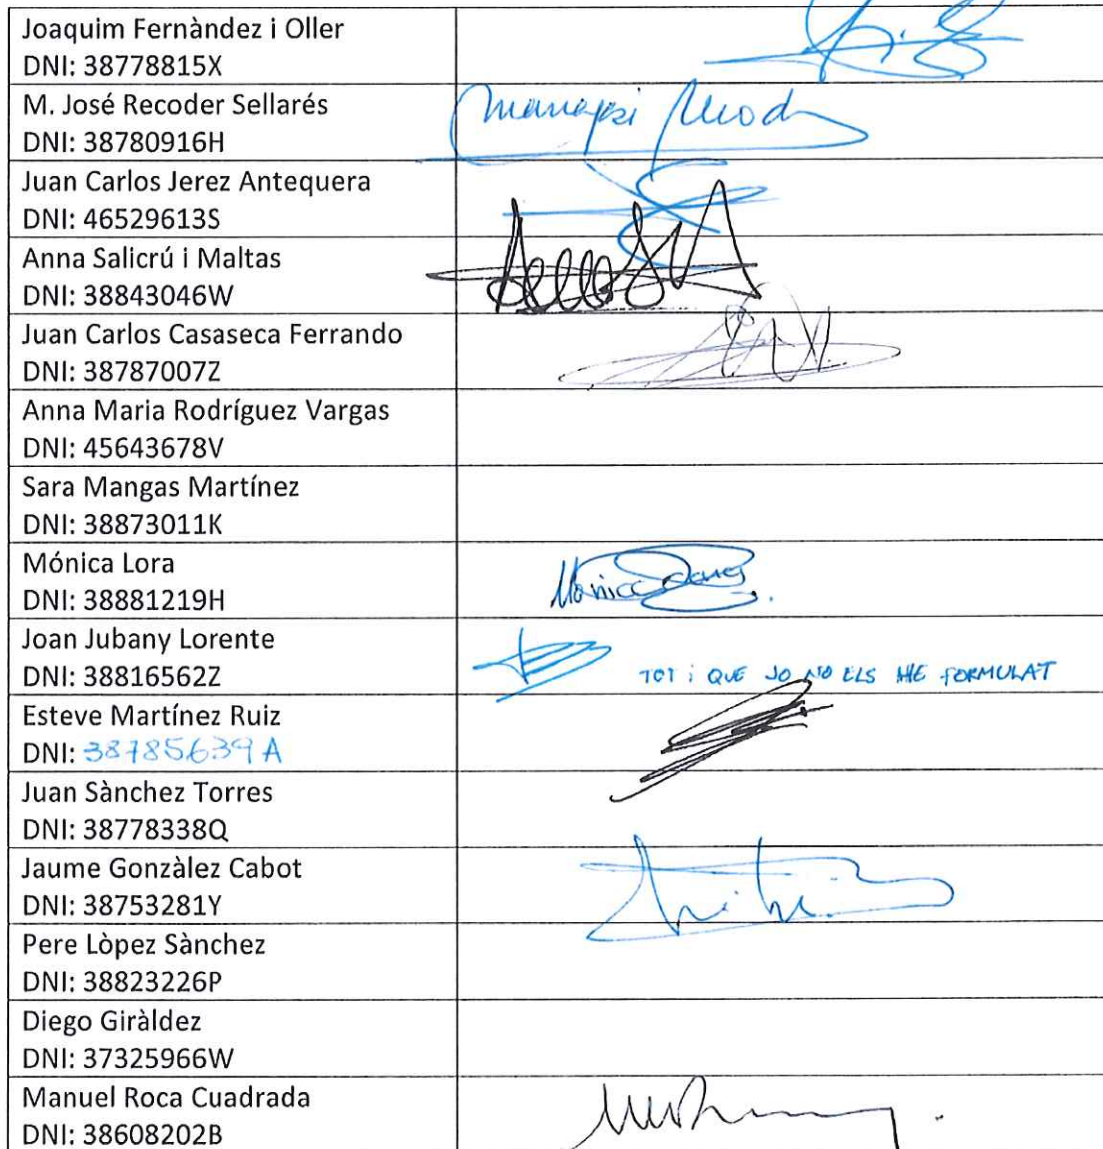 Joaquim Fernàndez i Oller
DNI: 38778815X
M. José Recoder Sellarés
DNI: 38780916H
Juan Carlos Jerez Antequera
DNI: 46529613S
Anna Salicrú i Maltas
DNI: 38843046W
Juan Carlos Casaseca Ferrando
DNI: 38787007Z
Anna Maria Rodríguez Vargas
DNI: 45643678V
Sara Mangas Martínez
DNI: 38873011K
Mónica Lora
DNI: 38881219H
Joan Jubany Lorente
DNI: 38816562Z
TOT i QUE JO NO ELS HE FORMULAT
Esteve Martínez Ruiz
DNI: 38785639A
Juan Sànchez Torres
DNI: 38778338Q
Jaume Gonzàlez Cabot
DNI: 38753281Y
Pere Lòpez Sànchez
DNI: 38823226P
Diego Giràldez
DNI: 37325966W
Manuel Roca Cuadrada
DNI: 38608202B